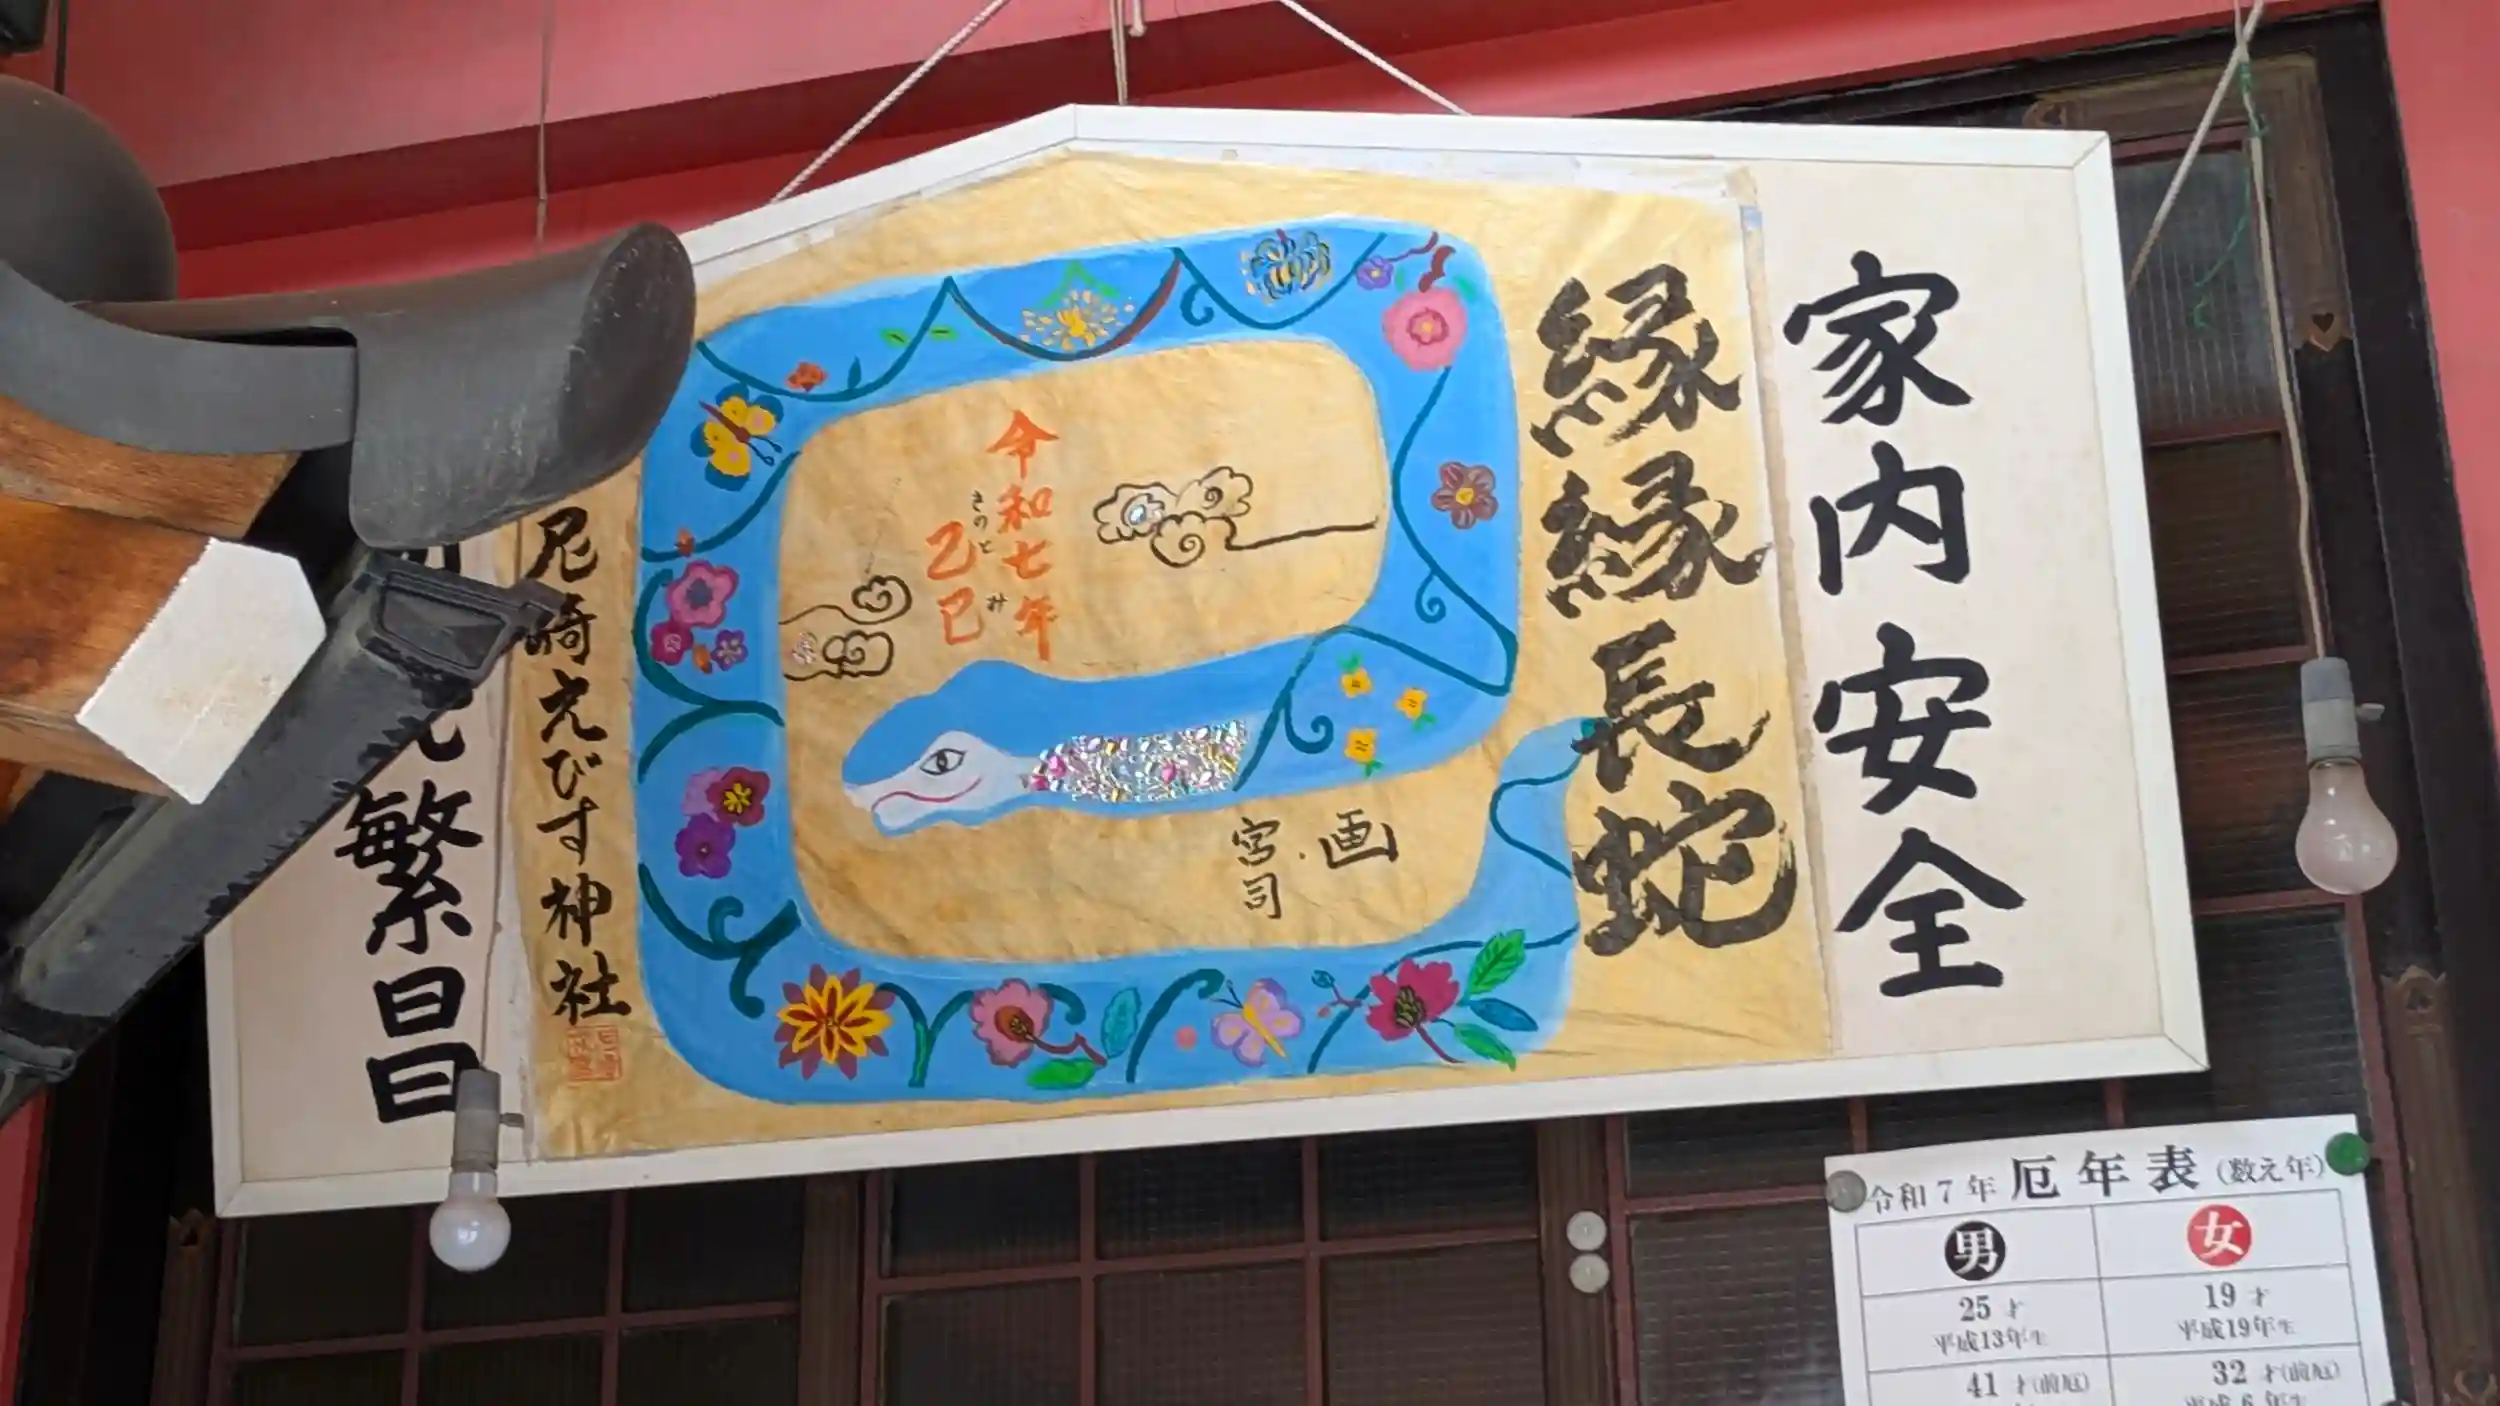 家内安全
縁縁長蛇
令和七年
きのと み
乙巳
画
宮司
尼崎えびす神社
繁昌
令和7年 厄年表(数え年)
男 女
25才 19才
平成13年生 平成19年生
41才(前厄) 32才(前厄)
平成6年生